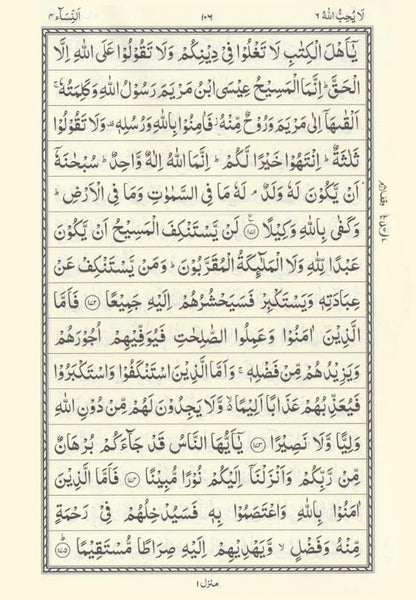 لَا يُحِبُّ اللهُ ٦
١٠٦
اَلنِّسَآء ٤
يٰۤاَهْلَ الْكِتٰبِ لَا تَغْلُوْا فِيْ دِيْنِكُمْ وَلَا تَقُوْلُوْا عَلَى اللهِ اِلَّا
الْحَقَّ ؕ اِنَّمَا الْمَسِيْحُ عِيْسَى ابْنُ مَرْيَمَ رَسُوْلُ اللهِ وَكَلِمَتُهٗ ۚ
اَلْقٰىهَاۤ اِلٰى مَرْيَمَ وَرُوْحٌ مِّنْهُ ؗ فَاٰمِنُوْا بِاللهِ وَرُسُلِهٖ ۚ۫ وَلَا تَقُوْلُوْا
ثَلٰثَةٌ ؕ اِنْتَهُوْا خَيْرًا لَّكُمْ ؕ اِنَّمَا اللهُ اِلٰهٌ وَّاحِدٌ ؕ سُبْحٰنَهٗۤ
اَنْ يَّكُوْنَ لَهٗ وَلَدٌ ۘ لَهٗ مَا فِي السَّمٰوٰتِ وَمَا فِي الْاَرْضِ ؕ
وَكَفٰى بِاللهِ وَكِيْلًا ﴿۱۷۱﴾ لَنْ يَّسْتَنْكِفَ الْمَسِيْحُ اَنْ يَّكُوْنَ
عَبْدًا لِّلّٰهِ وَلَا الْمَلٰٓئِكَةُ الْمُقَرَّبُوْنَ ؕ وَمَنْ يَّسْتَنْكِفْ عَنْ
عِبَادَتِهٖ وَيَسْتَكْبِرْ فَسَيَحْشُرُهُمْ اِلَيْهِ جَمِيْعًا ﴿۱۷۲﴾ فَاَمَّا
الَّذِيْنَ اٰمَنُوْا وَعَمِلُوا الصّٰلِحٰتِ فَيُوَفِّيْهِمْ اُجُوْرَهُمْ
وَيَزِيْدُهُمْ مِّنْ فَضْلِهٖ ۚ وَاَمَّا الَّذِيْنَ اسْتَنْكَفُوْا وَاسْتَكْبَرُوْا
فَيُعَذِّبُهُمْ عَذَابًا اَلِيْمًا ۙ وَّلَا يَجِدُوْنَ لَهُمْ مِّنْ دُوْنِ اللهِ
وَلِيًّا وَّلَا نَصِيْرًا ﴿۱۷۳﴾ يٰۤاَيُّهَا النَّاسُ قَدْ جَآءَكُمْ بُرْهَانٌ
مِّنْ رَّبِّكُمْ وَاَنْزَلْنَاۤ اِلَيْكُمْ نُوْرًا مُّبِيْنًا ﴿۱۷۴﴾ فَاَمَّا الَّذِيْنَ
اٰمَنُوْا بِاللهِ وَاعْتَصَمُوْا بِهٖ فَسَيُدْخِلُهُمْ فِيْ رَحْمَةٍ
مِّنْهُ وَفَضْلٍ ۙ وَّيَهْدِيْهِمْ اِلَيْهِ صِرَاطًا مُّسْتَقِيْمًا ﴿۱۷۵﴾ؕ
منزل ١